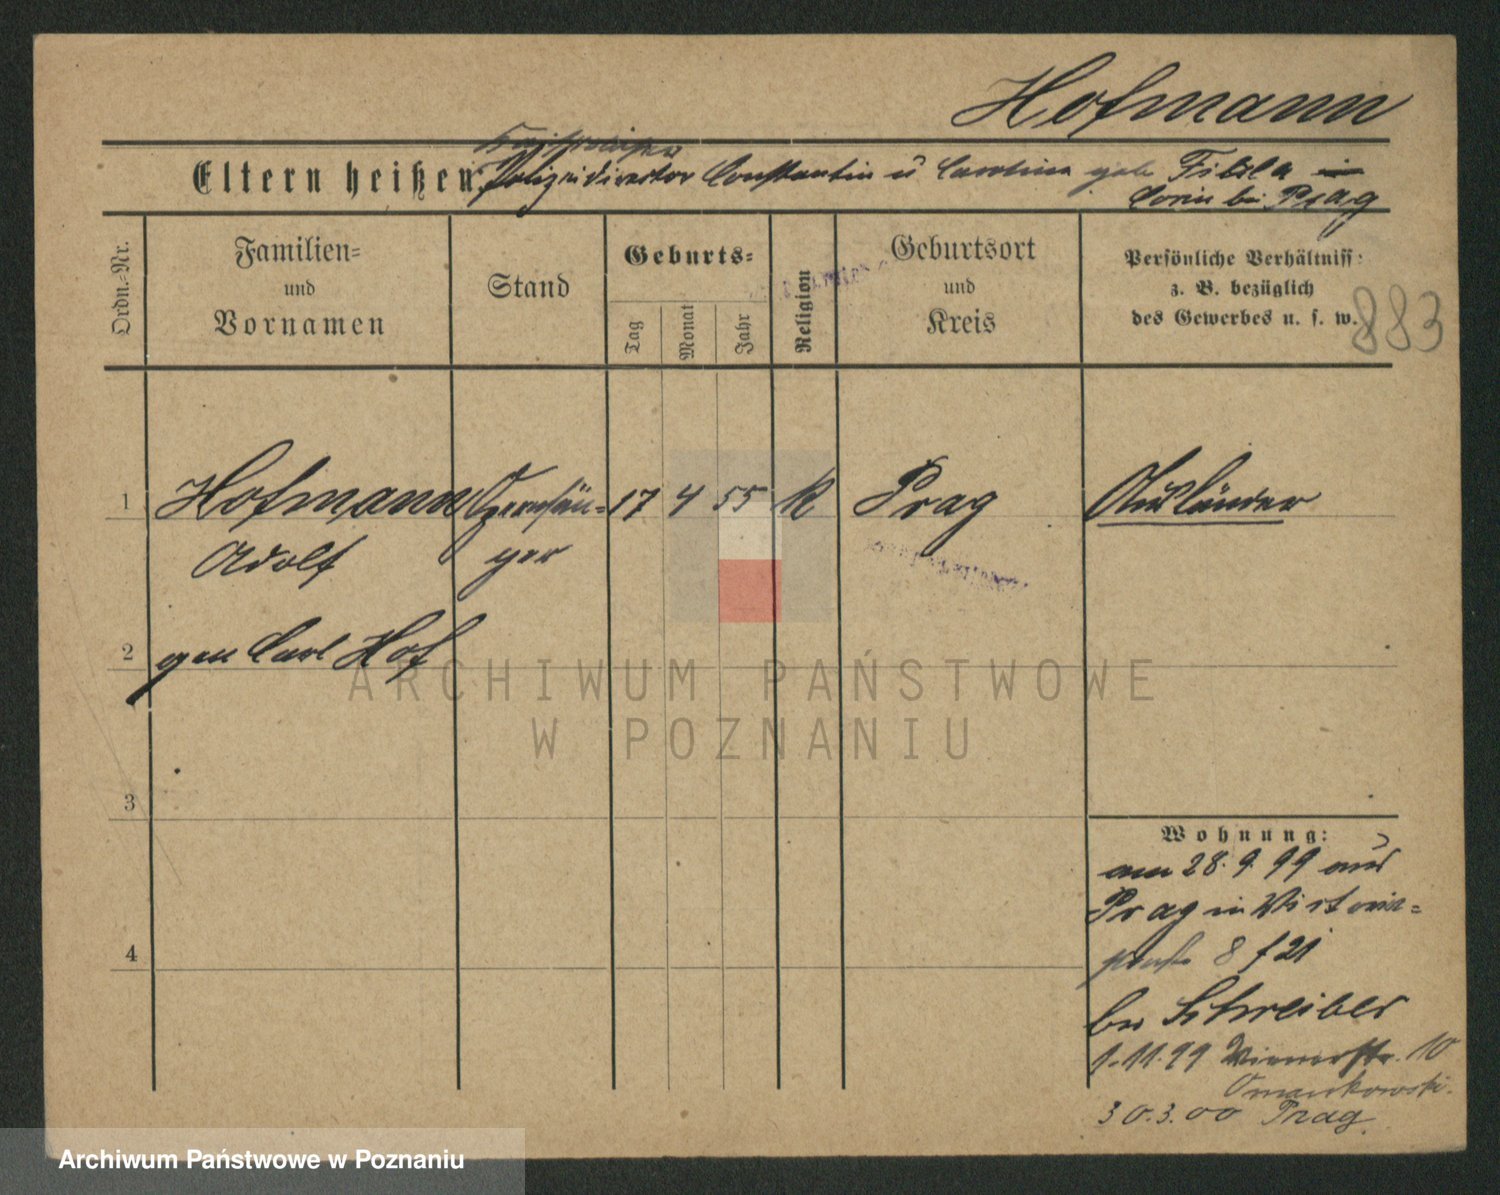 Hofmann
Eltern heißen: Polizeidirector Constantin u Carolina geb. Fibila in
bei Prag
Ordn.-Nr.
Familien-
und
Vornamen
Stand
Geburts-
Tag
Monat
Jahr
Religion
Geburtsort
und
Kreis
Persönliche Verhältniss:
z. B. bezüglich
des Gewerbes u. s. w.
883
1 Hofmann Opernsän- 17 4 55 k Prag Ausländer
Adolf ger
2 gen Carl Hof
3
4
Wohnung:
am 28. 9. 99 aus
Prag in Victoria-
8 f 21
bei Schreiber
1. 11. 99 Wienerstr. 10
Omankowski.
30. 3. 00 Prag.
ARCHIWUM PAŃSTWOWE
W POZNANIU
Archiwum Państwowe w Poznaniu